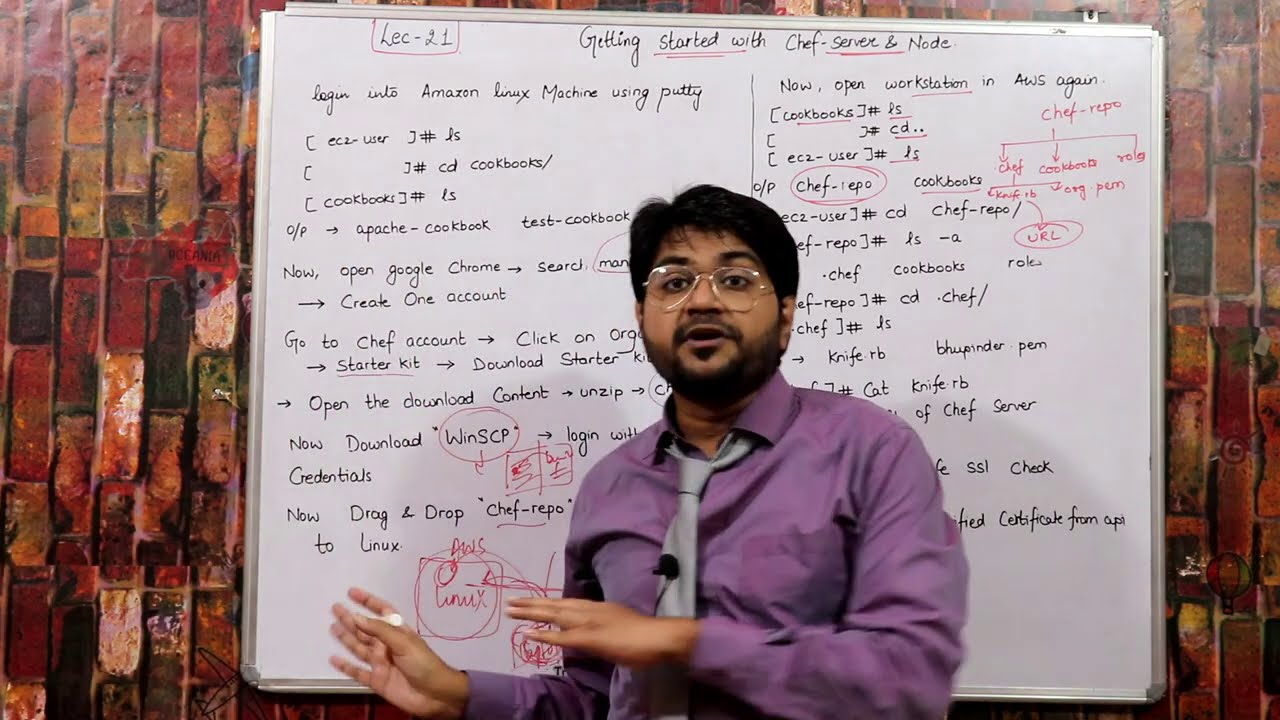 Lec-21
Getting started with Chef-server & Node.
login into Amazon linux Machine using putty
[ ec2-user ]# ls
[ ]# cd cookbooks/
[ cookbooks ]# ls
O/P → apache-cookbook test-cookbook
Now, open google Chrome → search
→ Create One account
Go to Chef account → Click on
→ Starter kit → Download Starter
→ Open the download Content → unzip →
Now Download "WinSCP" → login with
Credentials
Now Drag & Drop "Chef-repo"
to Linux.
AWS
Linux
Now, open workstation in AWS again.
[cookbooks]# ls
[ ]# cd..
[ ec2-user]# ls
O/P chef-repo cookbooks
ec2-user]# cd chef-repo/
]# ls -a
.chef cookbooks roles
]# cd .chef/
.chef ]# ls
→ knife.rb bhupinder.pem
]# Cat knife.rb
of Chef Server
ssl check
Certificate from api
chef-repo
chef cookbooks roles
knife.rb org.pem
URL